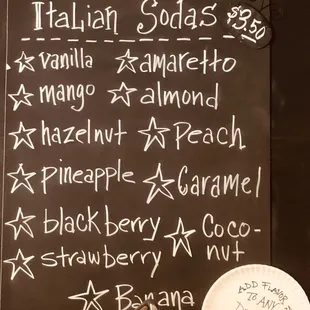 Italian Sodas $3.50
☆ vanilla ☆ amaretto
☆ mango ☆ almond
☆ hazelnut ☆ Peach
☆ pineapple ☆ Caramel
☆ blackberry ☆ Coco-
nut
☆ strawberry
☆ Banana
ADD FLAVOR
TO ANY